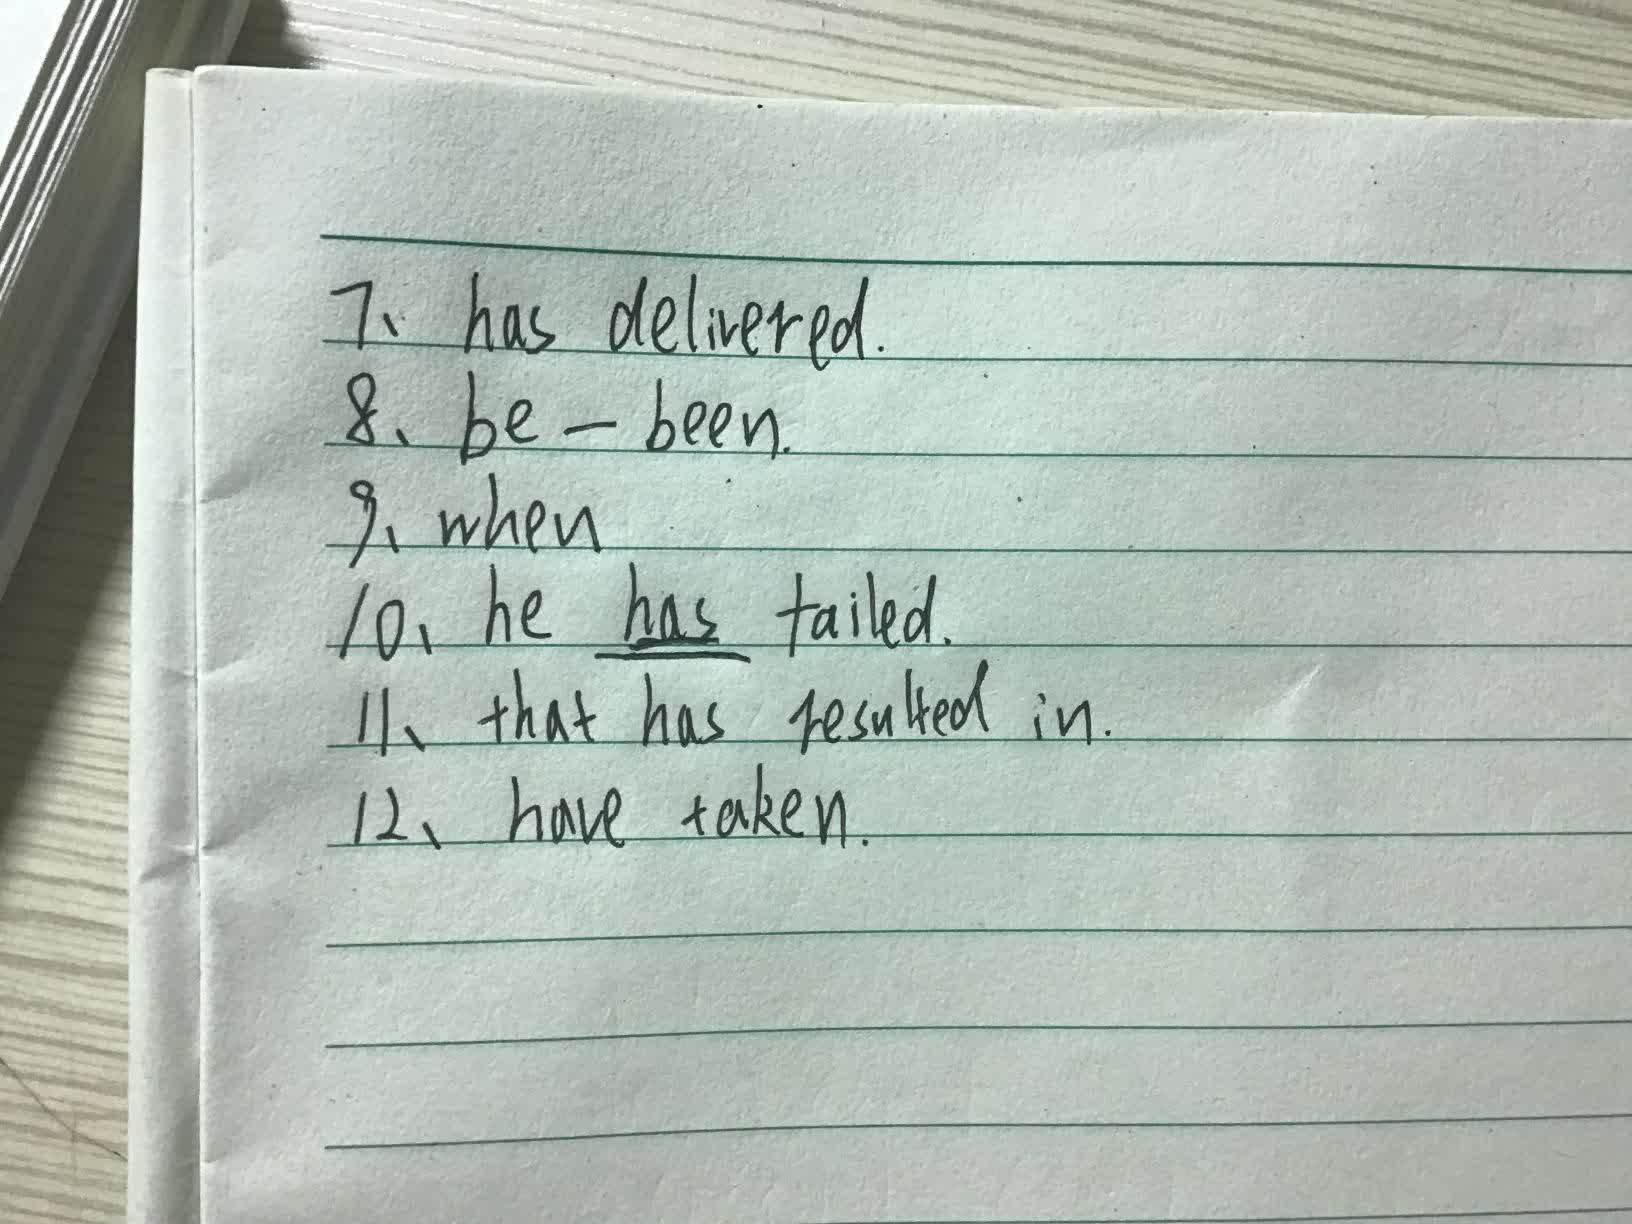 7、 has delivered.
8、 be — been.
9、 when
10、 he has tailed.
11、 that has resulted in.
12、 have taken.